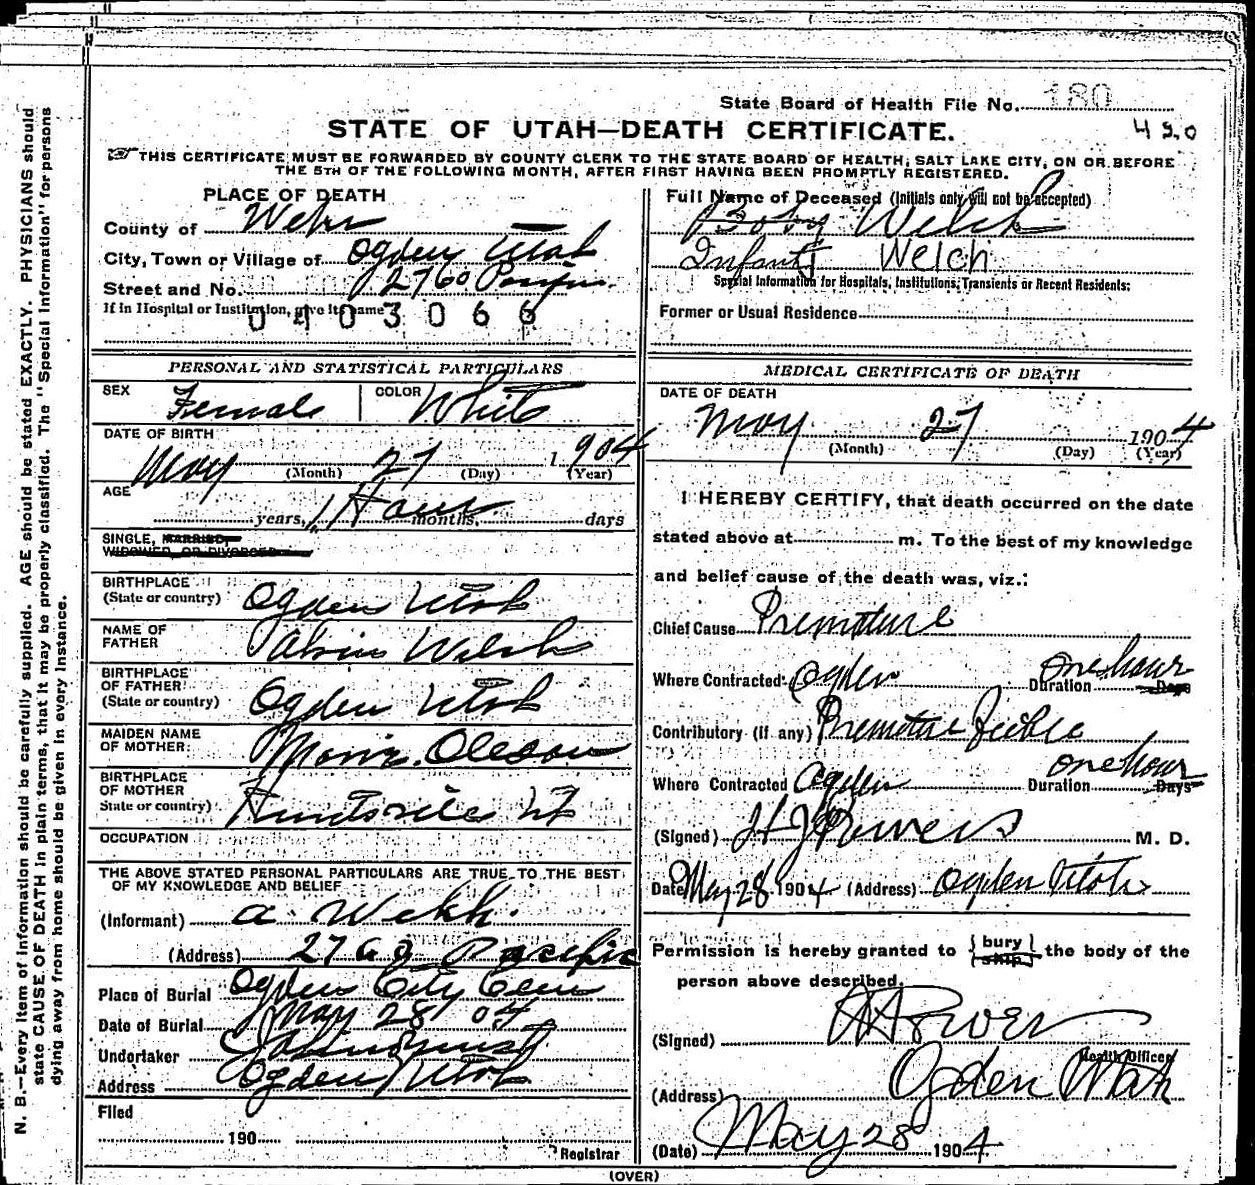 State Board of Health File No. 180
STATE OF UTAH—DEATH CERTIFICATE.
430
THIS CERTIFICATE MUST BE FORWARDED BY COUNTY CLERK TO THE STATE BOARD OF HEALTH, SALT LAKE CITY, ON OR BEFORE
THE 5TH OF THE FOLLOWING MONTH, AFTER FIRST HAVING BEEN PROMPTLY REGISTERED.
PLACE OF DEATH
County of Weber
City, Town or Village of Ogden Utah
Street and No. 2760
If in Hospital or Institution, give its name
0403066
Full Name of Deceased (Initials only will not be accepted)
Baby Welch
Infant Welch
Special Information for Hospitals, Institutions, Transients or Recent Residents:
Former or Usual Residence
PERSONAL AND STATISTICAL PARTICULARS
SEX Female COLOR White
DATE OF BIRTH
May (Month) 27 (Day) 1904 (Year)
AGE
years, 1 Hour months, days
SINGLE, MARRIED
WIDOWED, OR DIVORCED
BIRTHPLACE
(State or country) Ogden Utah
NAME OF
FATHER Welch
BIRTHPLACE
OF FATHER
(State or country) Ogden Utah
MAIDEN NAME
OF MOTHER Oleson
BIRTHPLACE
OF MOTHER
State or country) Huntsville Ut
OCCUPATION
THE ABOVE STATED PERSONAL PARTICULARS ARE TRUE TO THE BEST
OF MY KNOWLEDGE AND BELIEF
(Informant) A. Welch.
(Address) 2760 Pacific
Place of Burial Ogden City Cem
Date of Burial May 28 04
Undertaker
Address Ogden Utah
Filed
190
Registrar
MEDICAL CERTIFICATE OF DEATH
DATE OF DEATH
May (Month) 27 (Day) 1904 (Year)
I HEREBY CERTIFY, that death occurred on the date
stated above at m. To the best of my knowledge
and belief cause of the death was, viz.:
Chief Cause Premature
Where Contracted Ogden Duration one hour Days
Contributory (If any) Premature Feeble
Where Contracted Ogden Duration one hour Days
(Signed) H J Powers M. D.
Date May 28 1904 (Address) Ogden Utah
Permission is hereby granted to { bury ship } the body of the
person above described.
(Signed) Powers
Health Officer
(Address) Ogden Utah
(Date) May 28 1904
(OVER)
N. B.—Every item of information should be carefully supplied. AGE should be stated EXACTLY. PHYSICIANS should
state CAUSE OF DEATH in plain terms, that it may be properly classified. The "Special Information" for persons
dying away from home should be given in every instance.